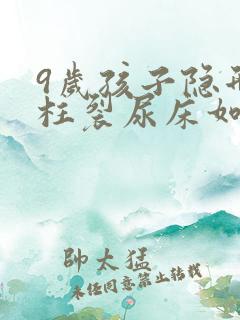 9岁孩子隐形
柱裂尿床如
帥太猛
未经同意禁止转载